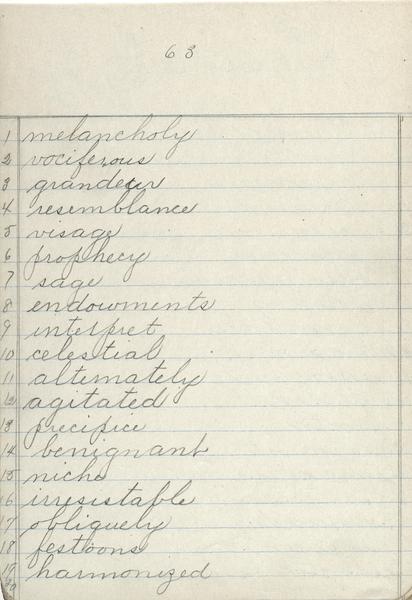 63
1 melancholy
2 vociferous
3 grandeur
4 resemblance
5 visage
6 prophecy
7 sage
8 endowments
9 interpret
10 celestial
11 altimately
12 agitated
13 precipice
14 benignant
15 niche
16 irresistable
17 obliquely
18 festoons
19 harmonized
20